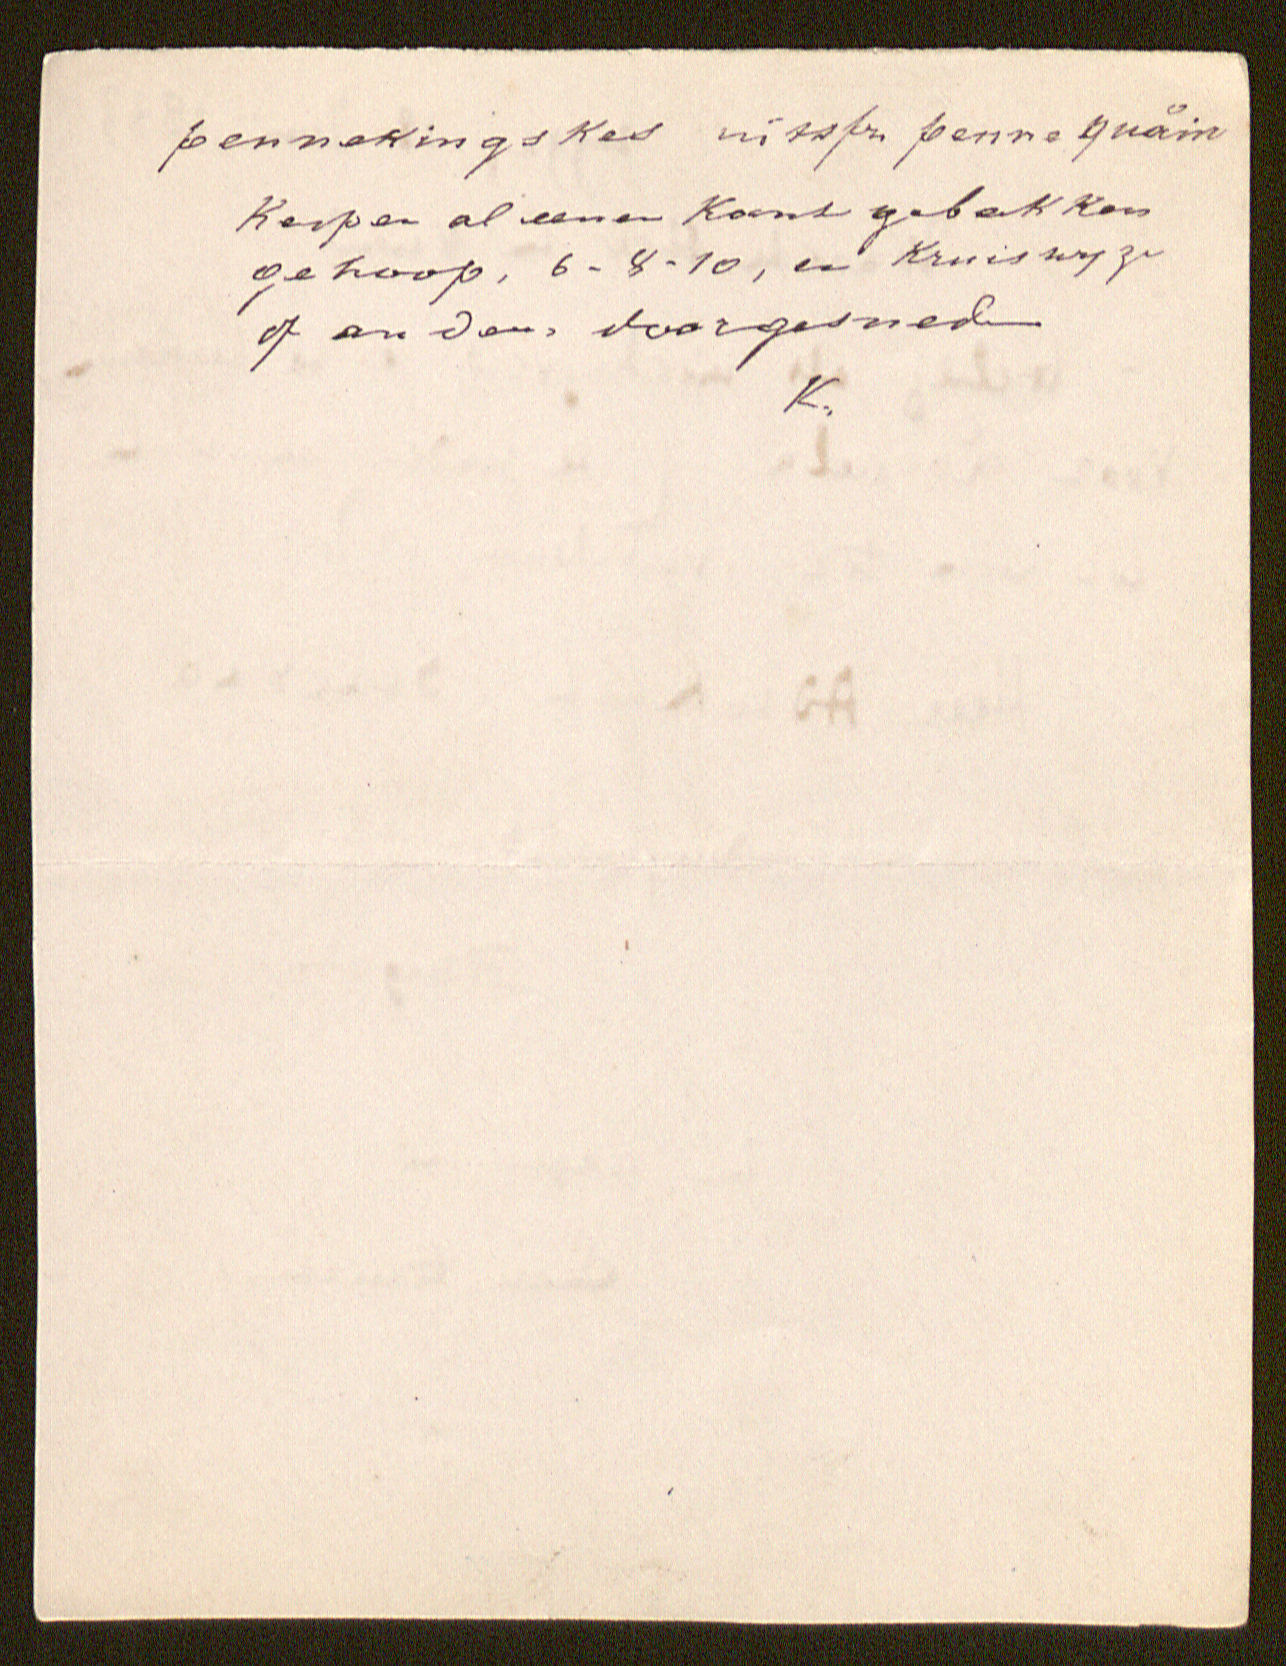 pennekingskes uitspr. pennequäin
Kespen al eenen Kant gebakken
gehoop, 6-8-10, en Kruiswyze
of anders doorgesneden
K.